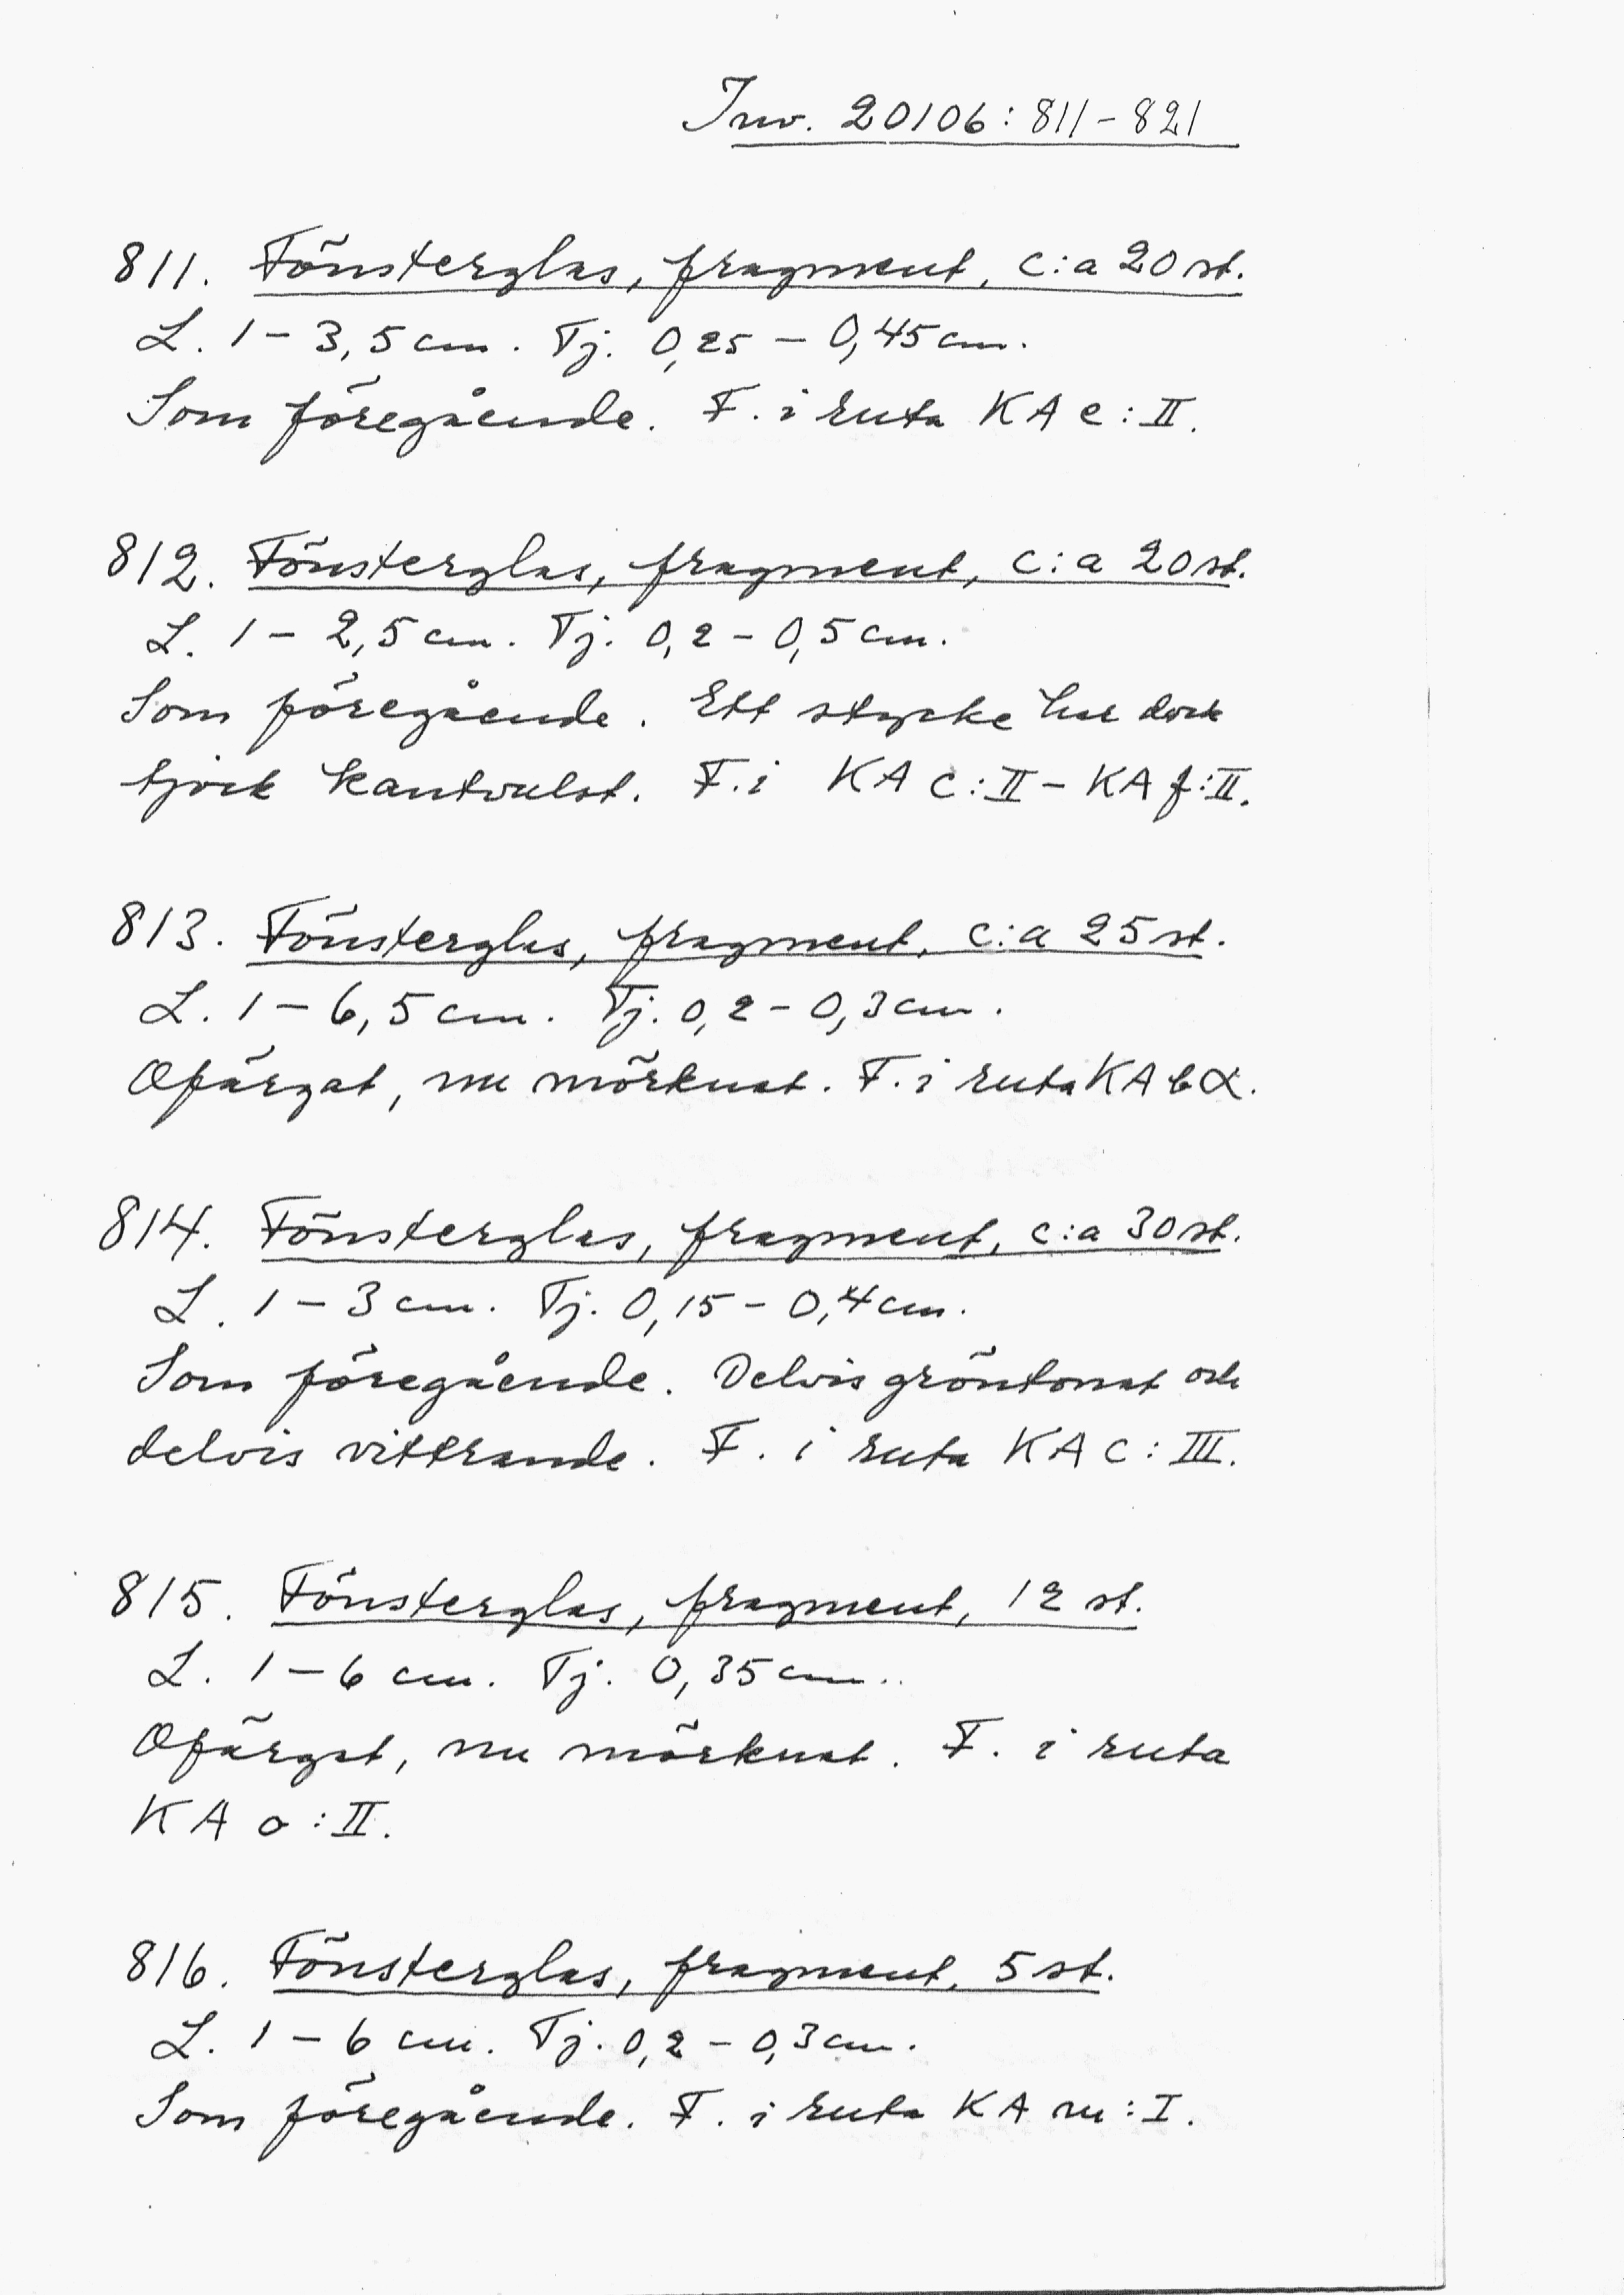 Inv. 20106:811-821
811. Fönsterglas, fragment, c:a 20 st.
L. 1-3,5 cm. Tj. 0,25 - 0,45 cm.
Som föregående. F. i ruta KA e:II.
812. Fönsterglas, fragment, c:a 20 st.
L. 1-2,5 cm. Tj. 0,2-0,5 cm.
Som föregående. Ett stycke har dock
tjock kantvulst. F. i KA c:II-KA f:II.
813. Fönsterglas, fragment, c:a 25 st.
L. 1-6,5 cm. Tj. 0,2-0,3 cm.
Ofärgat, nu mörknat. F. i ruta KA b α.
814. Fönsterglas, fragment, c:a 30 st.
L. 1-3 cm. Tj. 0,15-0,4 cm.
Som föregående. Delvis gröntonat och
delvis vittrande. F. i ruta KA c:III.
815. Fönsterglas, fragment, 12 st.
L. 1-6 cm. Tj. 0,35 cm.
Ofärgat, nu mörknat. F. i ruta
KA o:II.
816. Fönsterglas, fragment, 5 st.
L. 1-6 cm. Tj. 0,2-0,3 cm.
Som föregående. F. i ruta KA m:I.